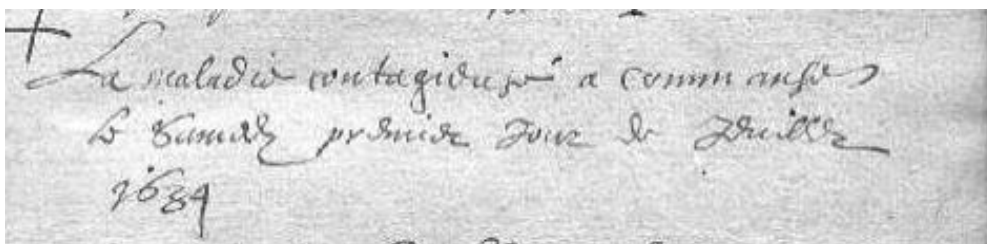 La maladie contagieuse a commansé
le samedy premier Jour de Jeuillet
1684